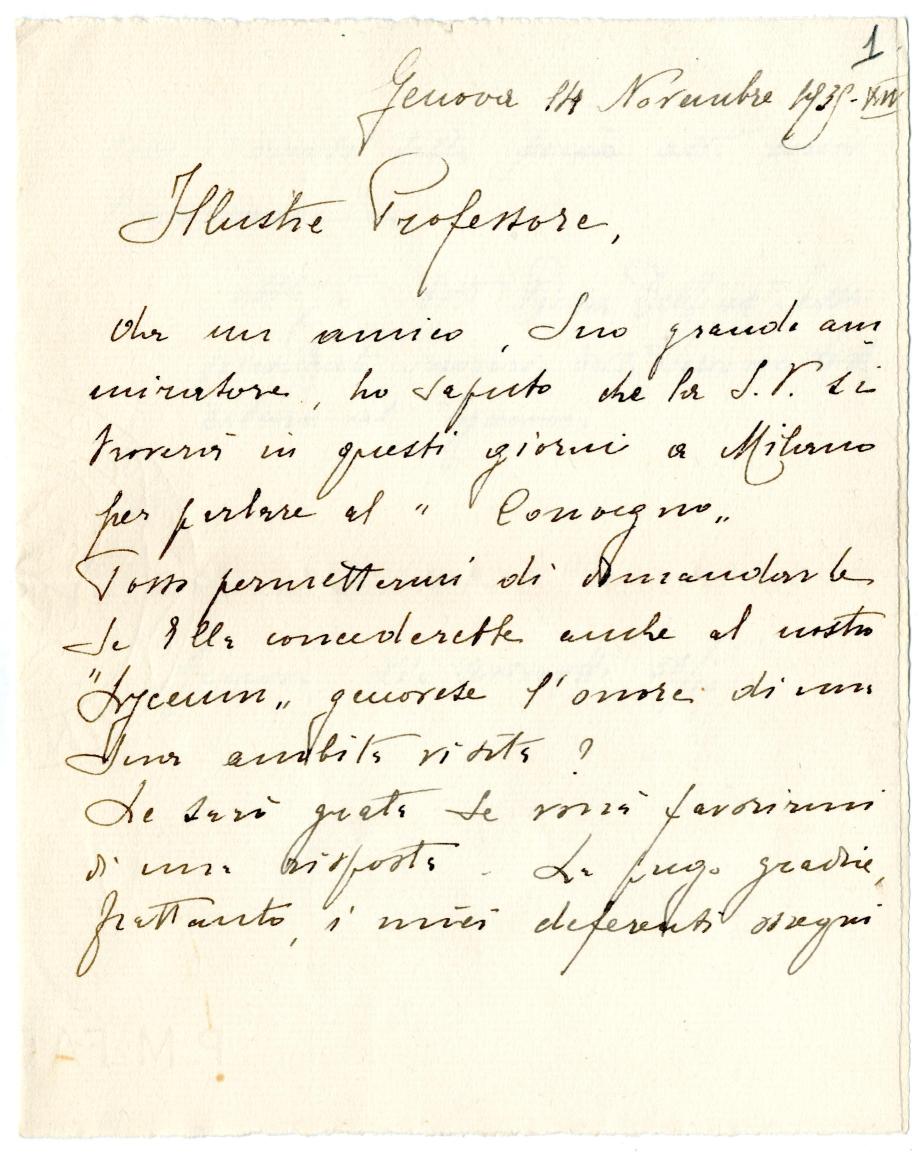 1
Genova 14 Novembre 1935-XIV
Illustre Professore,
da un amico, Suo grande am
miratore, ho saputo che la S. V. si
troverà in questi giorni a Milano
per parlare al " Convegno„
Posso permettermi di domandarle
se Ella concederebbe anche al nostro
"Lyceum„ genovese l'onore di una
Sua ambita visita ?
Le sarò grata se vorrà favorirmi
di una risposta. La prego gradire,
frattanto, i miei deferenti ossequi